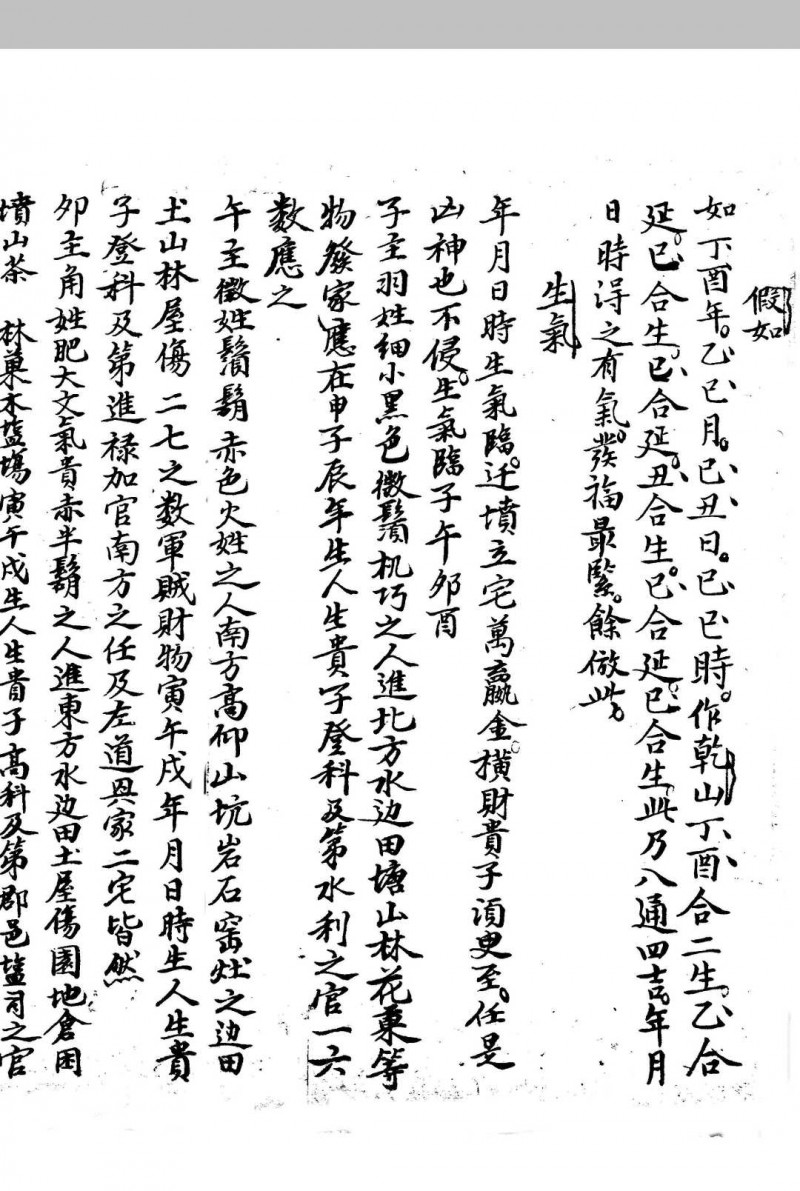 假如
如丁酉年。乙巳月。己丑日。己巳時。作乾山丁酉合二生。乙合
延。巳合生。己合延。丑合生。己合延。巳合生。此乃八通四吉。年月
日時得之有氣。發福最緊。餘倣此。
生氣
年月日時生氣臨。迁墳立宅萬贏金。橫財貴子湏臾至。任是
凶神也不侵。生氣臨子午夘酉
子主羽姓細小黑色微鬚机巧之人進北方水边田塘山林花菓等
物發家應在申子辰年生人生貴子登科及第水利之官一六
数應之
午主徵姓鬚鬍赤色火姓之人南方高仰山坑岩石窑灶之边田
土山林屋傷二七之数軍賊財物寅午戌年月日時生人生貴
子登科及第進禄加官南方之任及左道具家二宅皆然
夘主角姓肥大文氣貴赤半鬍之人進東方水边田土屋傷園地倉囷
墳山茶林菓木塩塲寅午戌生人生貴子高科及第郡邑塩司之官